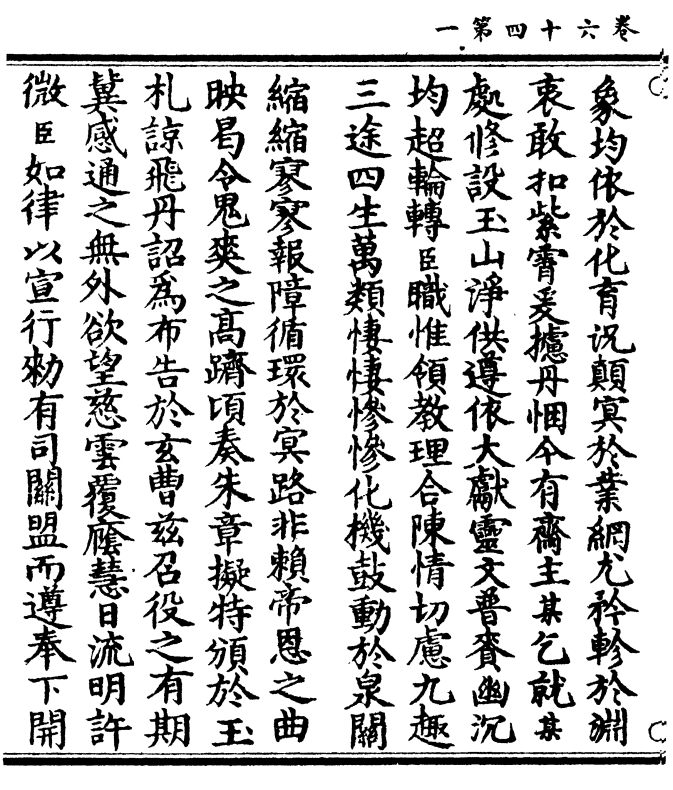 卷六十四第一
象均依於化育况顛冥於業網尤矜軫於淵
衷敢扣紫霄爰攄丹悃今有齋主某乞就某
處修設玉山淨供遵依大獻靈文普賚幽沉
均超輪轉臣職惟領教理合陳情切慮九趣
三途四生萬類悽悽慘慘化機鼓動於泉關
縮縮寥寥報障循環於冥路非賴帝恩之曲
映曷令鬼爽之高躋頃奏朱章擬特頒於玉
札諒飛丹詔為布告於玄曹茲召役之有期
冀感通之無外欲望慈雲覆廕慧日流明許
微臣如律以宣行勑有司關盟而遵奉下開